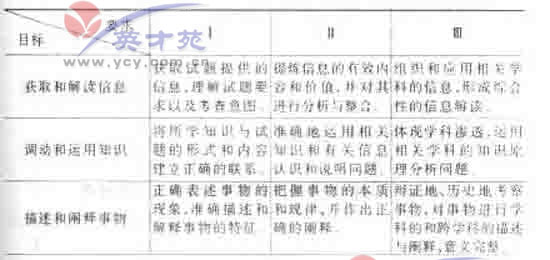 要求
目标
I II III
英才苑
www.ycy.com.cn
获取和解读信息
获取试题提供的
信息，理解试题要
求以及考查意图。
提炼信息的有效内
容和价值，并对其
进行分析与整合。
组织和应用相关学
科的信息，形成综合
性的信息解读。
调动和运用知识
将所学知识与试
题的形式和内容
建立正确的联系。
准确地运用相关
知识和有关信息
认识和说明问题。
体现学科渗透，运用
相关学科的知识原
理分析问题。
描述和阐释事物
正确表述事物的
现象，准确描述和
解释事物的特征。
把握事物的本质
和规律，并作出正
确的阐释。
辩证地、历史地考察
事物，对事物进行学
科的和跨学科的描述
与阐释，意义完整。